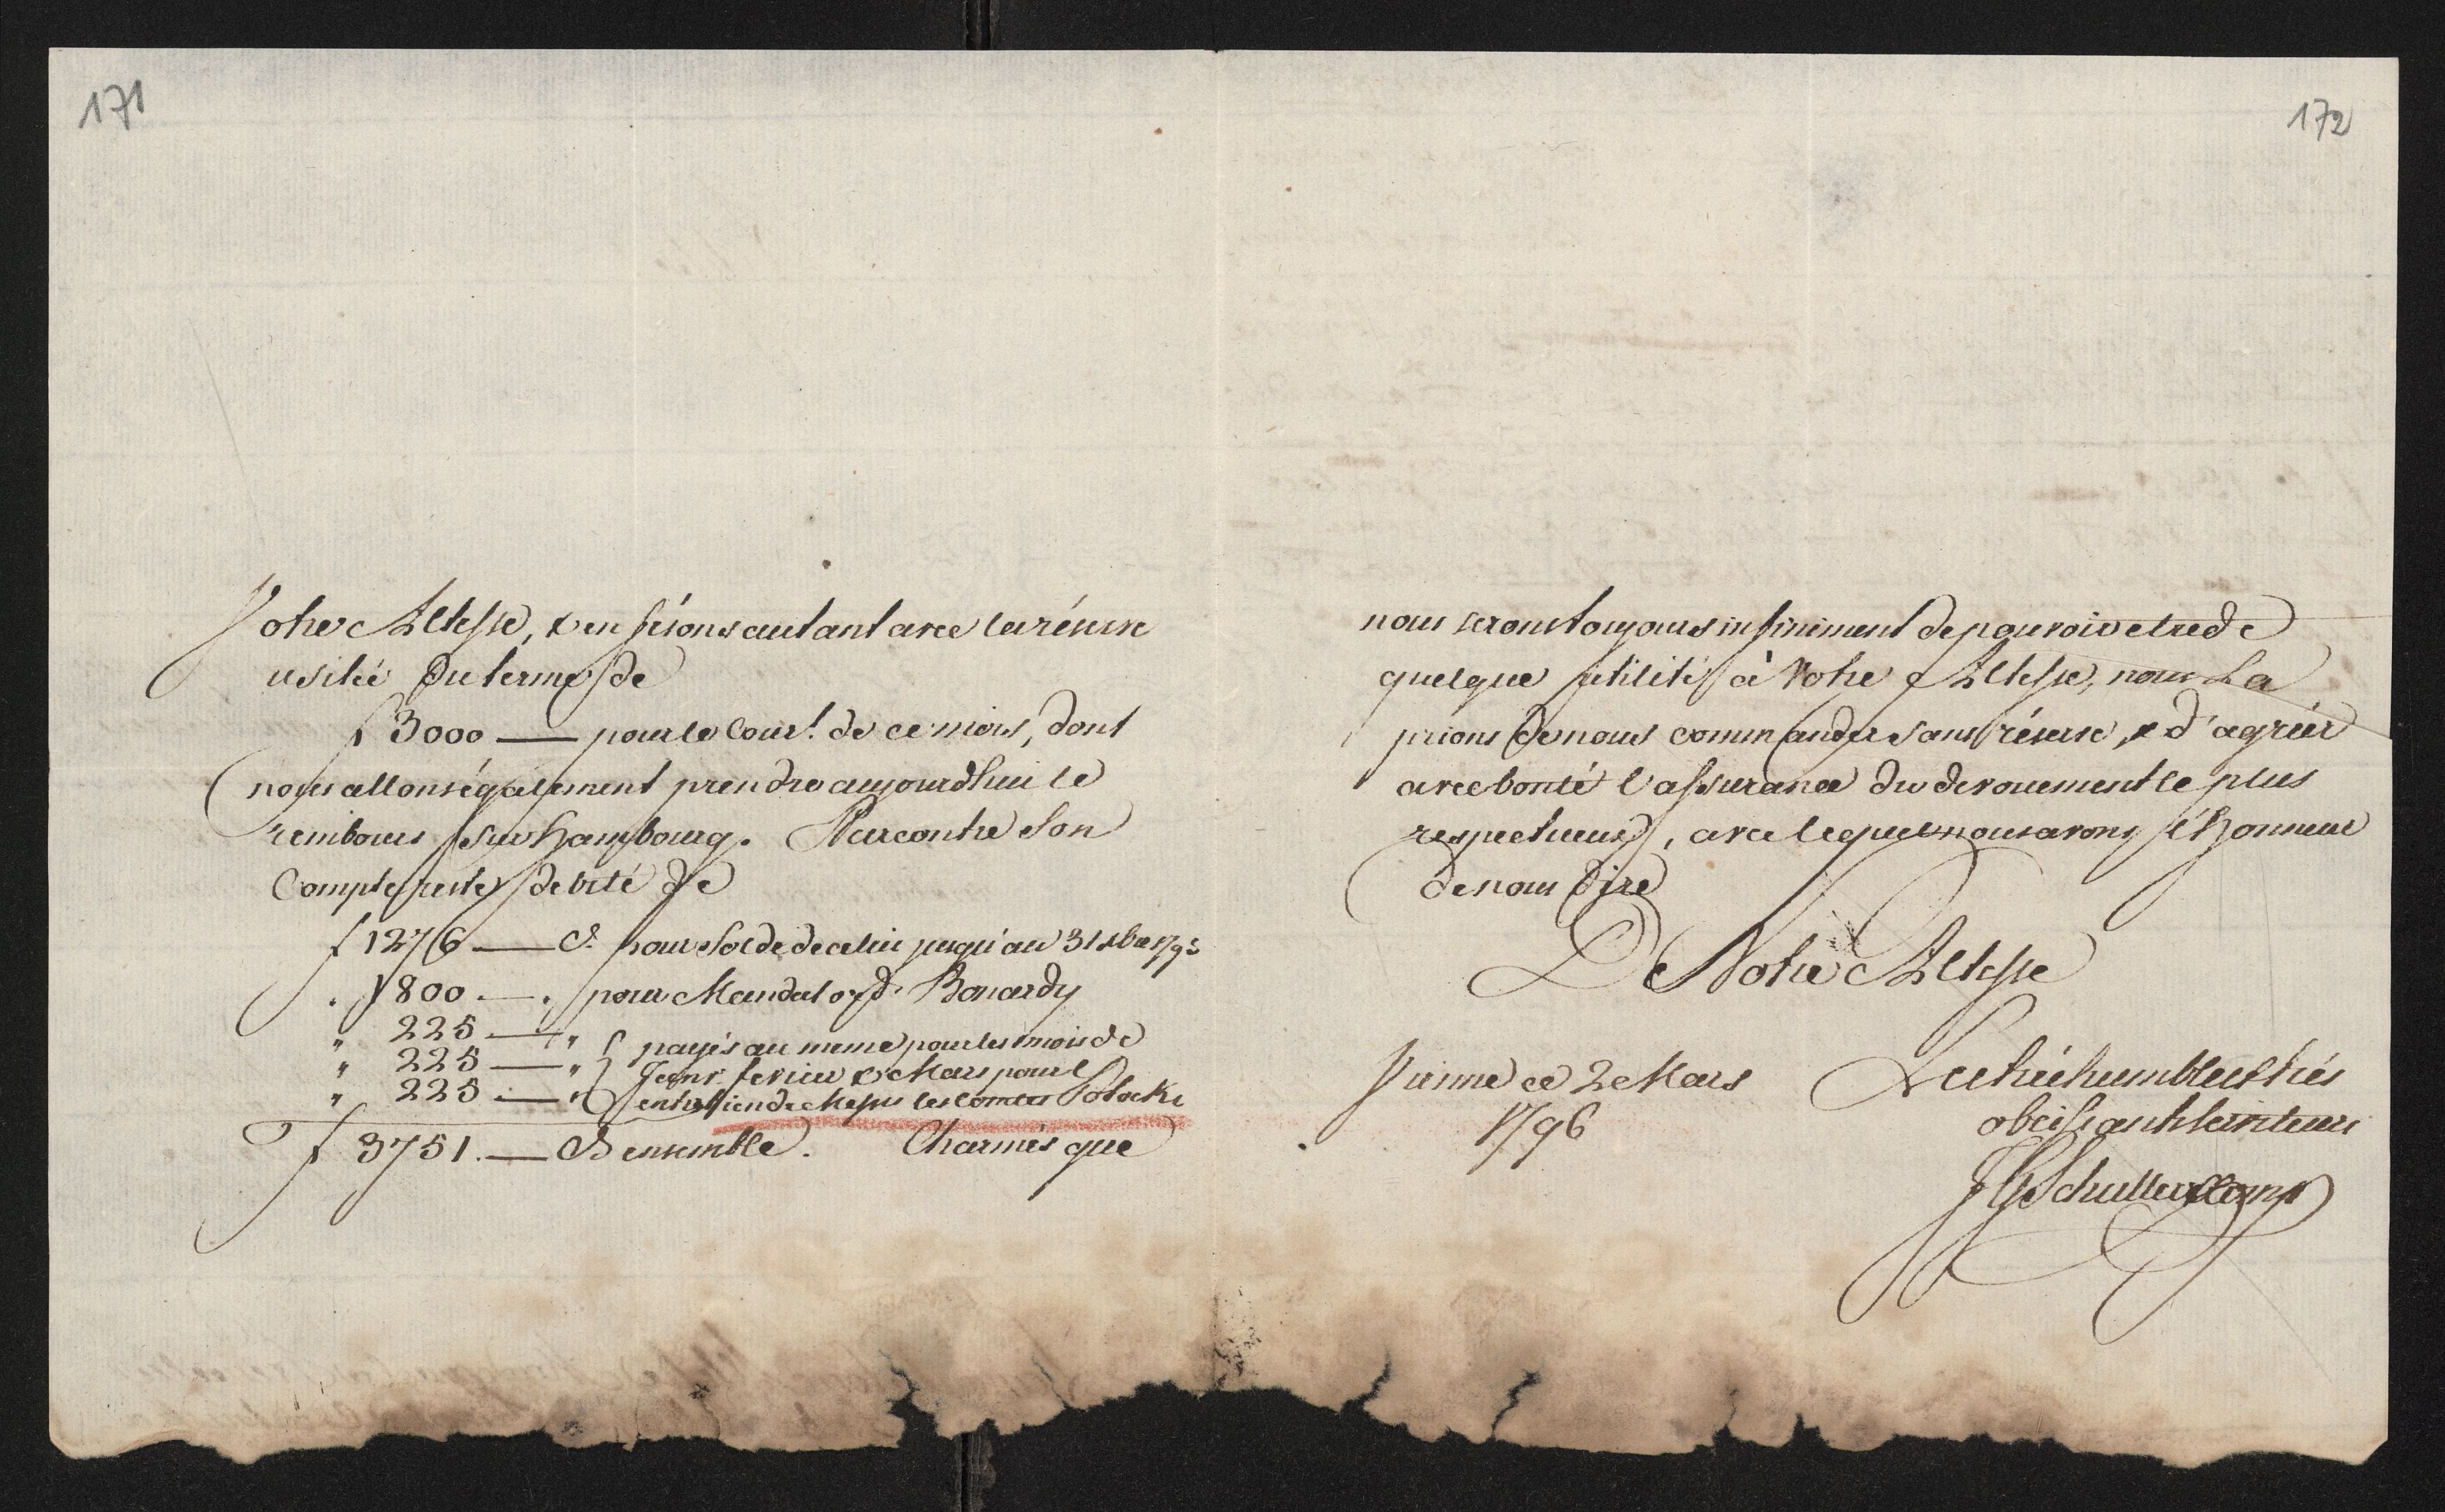 171
Votre Altesse, & en fésons autant avec la réserve
usitée du terme de
f 3000 — pour le Cour.t de ce mois, dont
nous allons également prendre aujourdhui le
rembours sur Hambourg. Par contre Son
Compte reste debité de
f 1276 — C.t pour Solde de celui jusqu'au 31 xbre 1795
" 1800 — " pour Mandat o/ d. Bonardy
" 225 — " payés au meme pour les mois de
" 225 — " Janv. fevrier & Mars pour l'
" 225 — " entretien de Mess les Comtes Potocki
f 3751. — Ensemble. Charmés que
172
nous serons toujours infiniment de pouvoir etre de
quelque utilité à Votre Altesse, nous La
prions de nous commander sans réserve, & d'agréer
avec bonté l'assurance du devouement le plus
respectueux, avec lequel nous avons l'honneur
de nous dire
De Votre Altesse
Vienne ce 2 Mars
1796
Les très humbles & très
obeissants serviteurs
J G Schuller & Comp